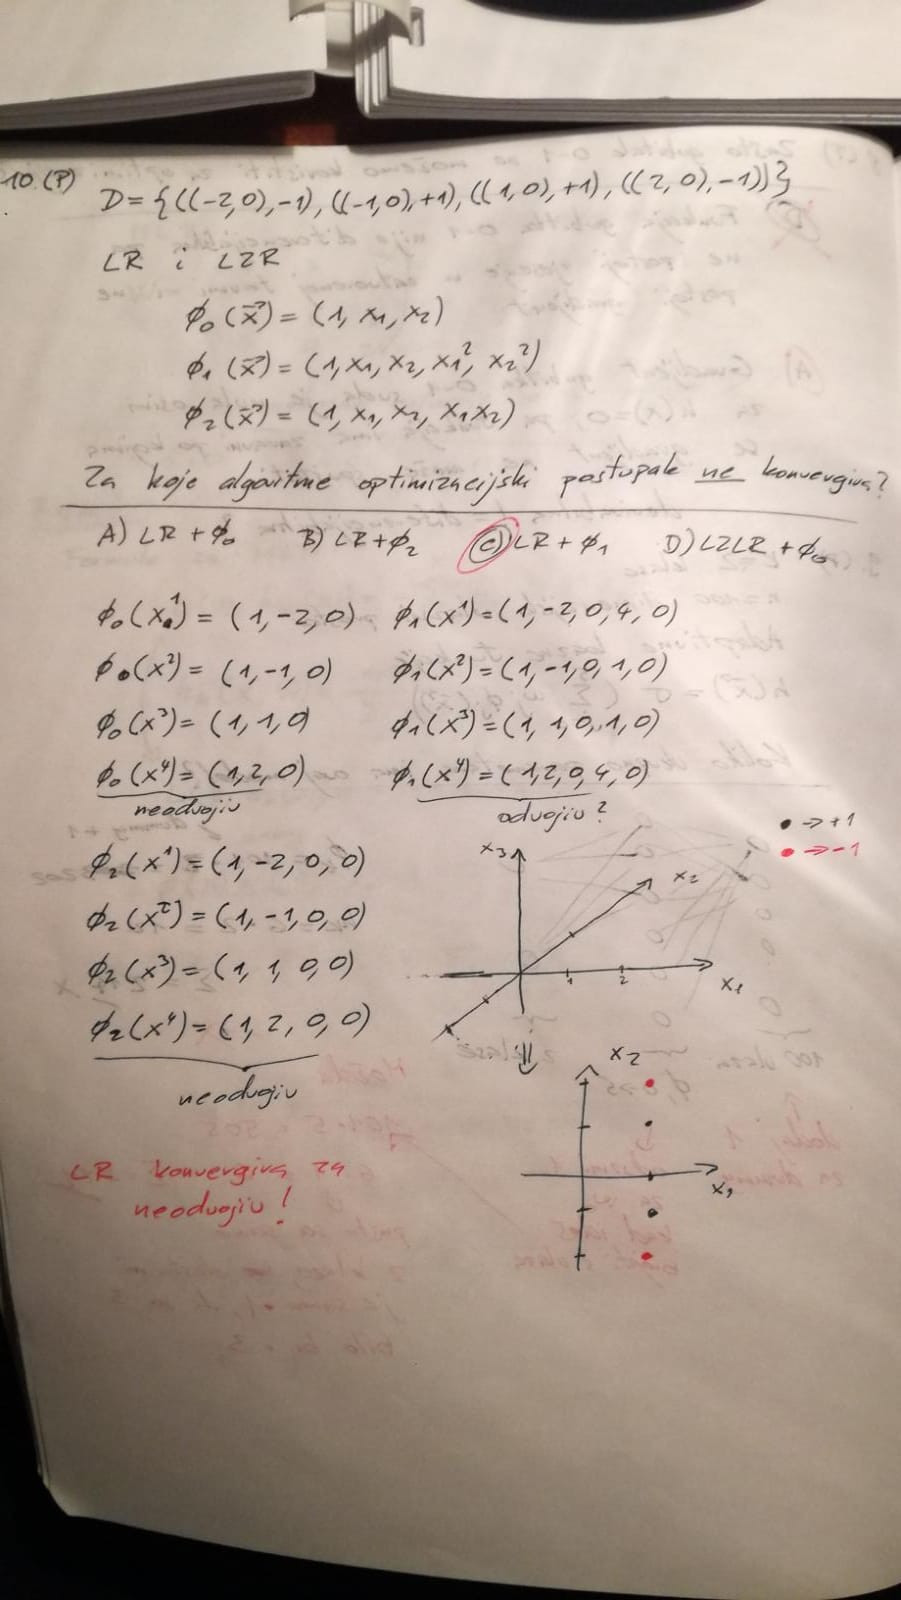 10.(P)
D={((-2,0),-1), ((-1,0),+1), ((1,0),+1), ((2,0),-1))}
LR i LZR
ϕ₀(x⃗)= (1, x₁, x₂)
ϕ₁(x⃗)= (1, x₁, x₂, x₁², x₂²)
ϕ₂(x⃗)= (1, x₁, x₂, x₁x₂)
Za koje algoritme optimizacijski postupak ne konvergira?
A) LR + ϕ₀ B) LR+ϕ₂ C) LR + ϕ₁ D) LZLR + ϕ₀
ϕ₀(x¹)= (1,-2,0) ϕ₁(x¹)=(1,-2,0,4,0)
ϕ₀(x²)= (1,-1,0) ϕ₁(x²)=(1,-1,0,1,0)
ϕ₀(x³)= (1,1,0) ϕ₁(x³)=(1,1,0,1,0)
ϕ₀(x⁴)= (1,2,0) ϕ₁(x⁴)=(1,2,0,4,0)
neodvojiv odvojiv?
• → +1
• → -1
ϕ₂(x¹)=(1,-2,0,0)
ϕ₂(x²)=(1,-1,0,0)
ϕ₂(x³)=(1,1,0,0)
ϕ₂(x⁴)=(1,2,0,0)
neodvojiv
x₃
x₂
1 2
x₁
x₂
x₁
LR konvergira za
neodvojiv!